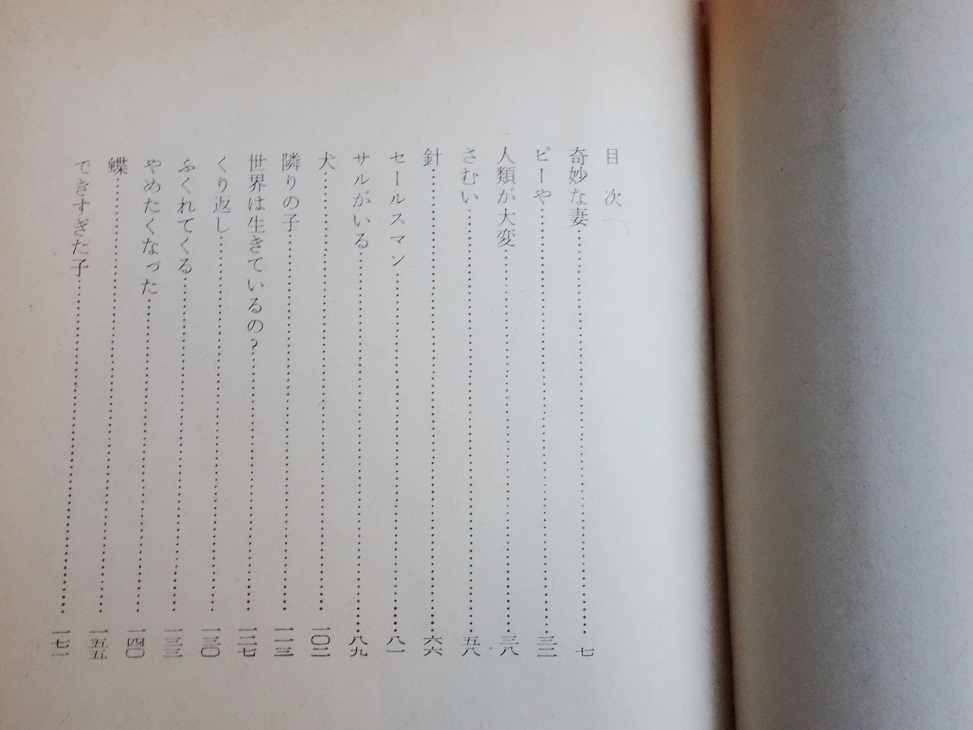 目次
奇妙な妻……七
ピーや……三二
人類が大変……三八
さむい……五八
針……六六
セールスマン……八一
サルがいる……八九
犬……一〇二
隣りの子……一一三
世界は生きているの？……一二七
くり返し……一三〇
ふくれてくる……一三三
やめたくなった……一四〇
蝶……一五五
できすぎた子……一七一